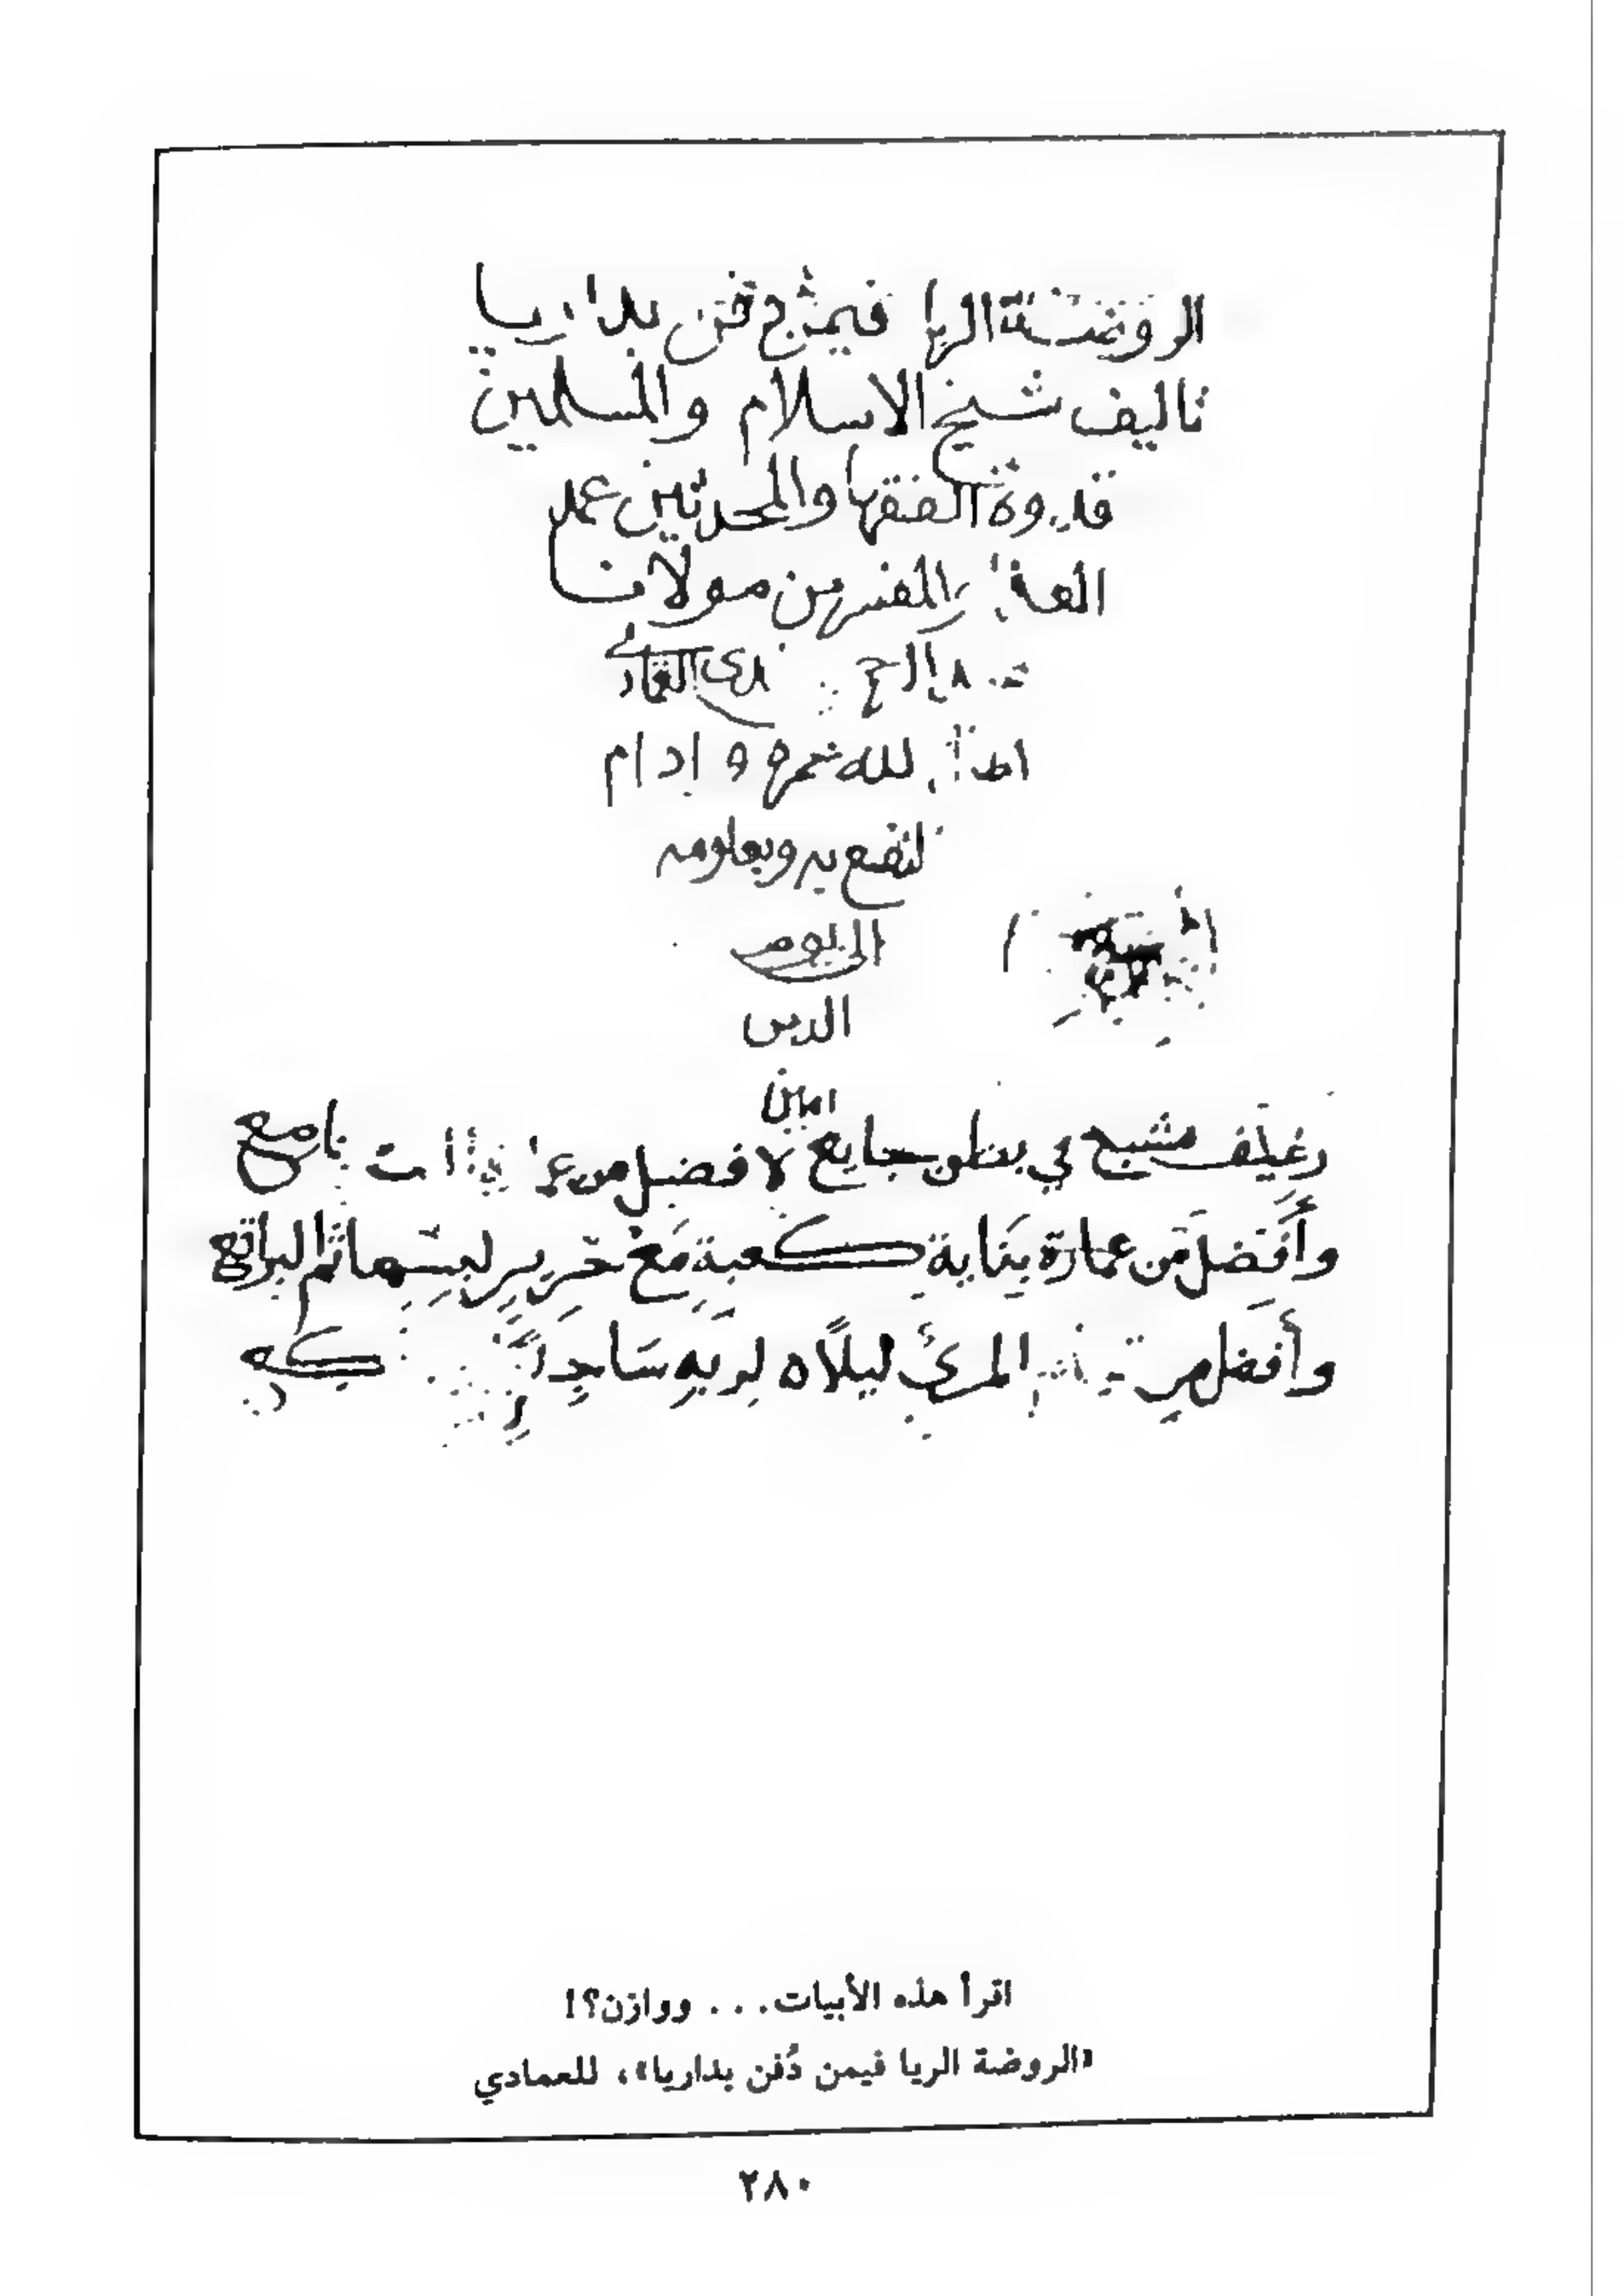 الروضة الريا فيمن دفن بداريا
تاليف شيخ الاسلام والمسلمين
قدوة الفقها والمحدثين عمدة
المفسرين مولانا
العمادي
الله عمره وادام
النفع به وبعلومه
الى يوم
الدين
امين
رغيف مشبح في بطن جايع لافضل من جامع
وأفضل من عمارة بناية كعبة مع حرير لبسها ثم البراقع
وأفضل من المرئ ليلاه لربه ساجد
اقرأ هذه الأبيات... ووازن؟!
«الروضة الريا فيمن دُفن بداريا»، للعمادي
٢٨٠